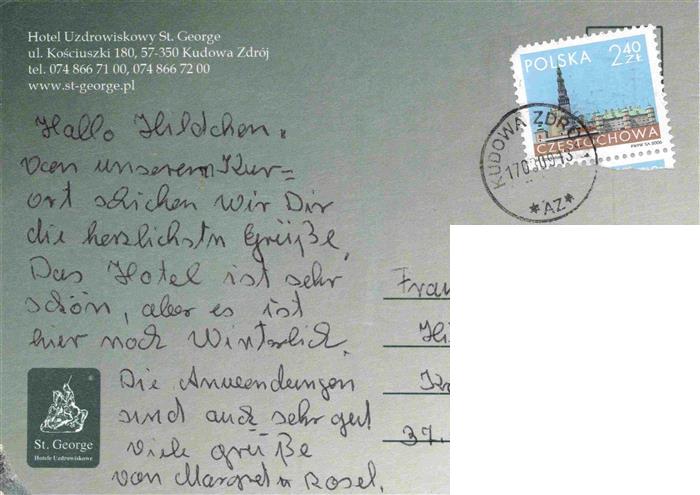 Hotel Uzdrowiskowy St. George
ul. Kościuszki 180, 57-350 Kudowa Zdrój
tel. 074 866 71 00, 074 866 72 00
www.st-george.pl
POLSKA 2,40 ZŁ
CZĘSTOCHOWA
PWPW SA 2006
KUDOWA ZDRÓJ
*AZ*
Hallo Hildchen.
von unserem Kur=
ort schicken wir Dir
die herzlichstn Grüße.
Das Hotel ist sehr
schön, aber es ist
hier noch Winterlich.
Die Anwendungen
sind auch sehr gut
viele grüße
von Margret u Rosel.
Frau
Hi
37.
St. George
Hotele Uzdrowiskowe